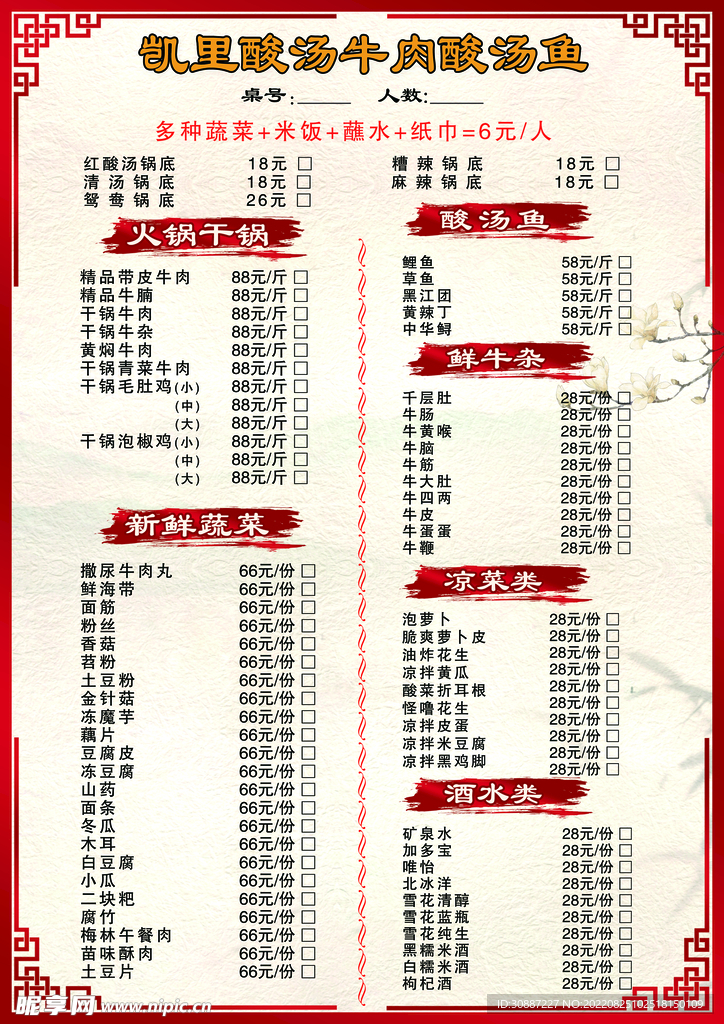 凯里酸汤牛肉酸汤鱼
桌号:_____ 人数:_____
多种蔬菜+米饭+蘸水+纸巾=6元/人
红酸汤锅底 18元 □
清汤锅底 18元 □
鸳鸯锅底 26元 □
糟辣锅底 18元 □
麻辣锅底 18元 □
火锅干锅
精品带皮牛肉 88元/斤 □
精品牛腩 88元/斤 □
干锅牛肉 88元/斤 □
干锅牛杂 88元/斤 □
黄焖牛肉 88元/斤 □
干锅青菜牛肉 88元/斤 □
干锅毛肚鸡(小) 88元/斤 □
(中) 88元/斤 □
(大) 88元/斤 □
干锅泡椒鸡(小) 88元/斤 □
(中) 88元/斤 □
(大) 88元/斤 □
新鲜蔬菜
撒尿牛肉丸 66元/份 □
鲜海带 66元/份 □
面筋 66元/份 □
粉丝 66元/份 □
香菇 66元/份 □
苕粉 66元/份 □
土豆粉 66元/份 □
金针菇 66元/份 □
冻魔芋 66元/份 □
藕片 66元/份 □
豆腐皮 66元/份 □
冻豆腐 66元/份 □
山药 66元/份 □
面条 66元/份 □
冬瓜 66元/份 □
木耳 66元/份 □
白豆腐 66元/份 □
小瓜 66元/份 □
二块粑 66元/份 □
腐竹 66元/份 □
梅林午餐肉 66元/份 □
苗味酥肉 66元/份 □
土豆片 66元/份 □
酸汤鱼
鲤鱼 58元/斤 □
草鱼 58元/斤 □
黑江团 58元/斤 □
黄辣丁 58元/斤 □
中华鲟 58元/斤 □
鲜牛杂
千层肚 28元/份 □
牛肠 28元/份 □
牛黄喉 28元/份 □
牛脑 28元/份 □
牛筋 28元/份 □
牛大肚 28元/份 □
牛四两 28元/份 □
牛皮 28元/份 □
牛蛋蛋 28元/份 □
牛鞭 28元/份 □
凉菜类
泡萝卜 28元/份 □
脆爽萝卜皮 28元/份 □
油炸花生 28元/份 □
凉拌黄瓜 28元/份 □
酸菜折耳根 28元/份 □
怪噜花生 28元/份 □
凉拌皮蛋 28元/份 □
凉拌米豆腐 28元/份 □
凉拌黑鸡脚 28元/份 □
28元/份 □
酒水类
矿泉水 28元/份 □
加多宝 28元/份 □
唯怡 28元/份 □
北冰洋 28元/份 □
雪花清醇 28元/份 □
雪花蓝瓶 28元/份 □
雪花纯生 28元/份 □
黑糯米酒 28元/份 □
白糯米酒 28元/份 □
枸杞酒 28元/份 □
昵享网 www.nipic.cn
ID:30887227 NO:20220825102518150109